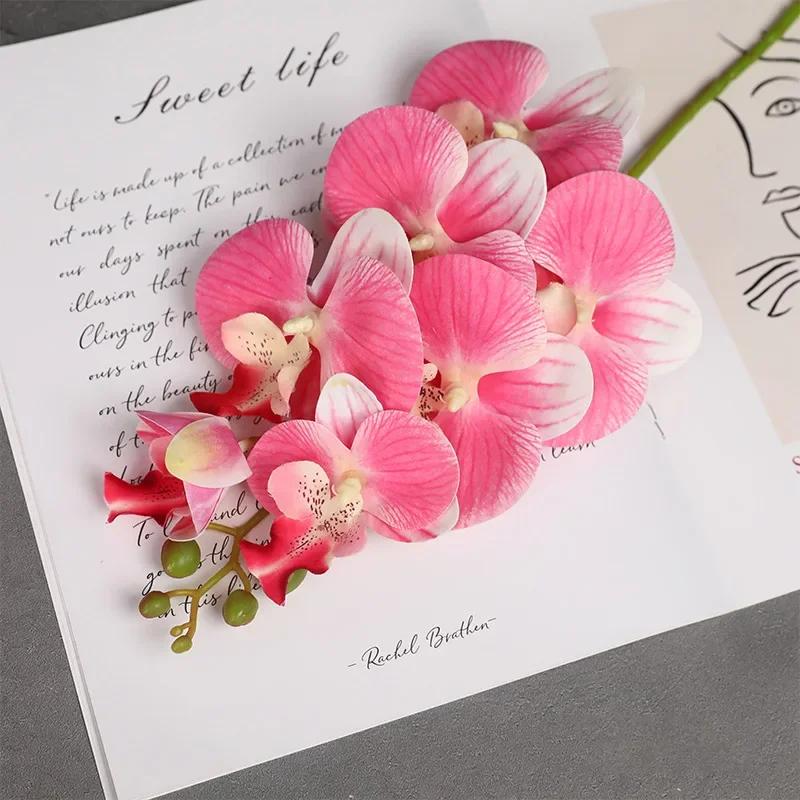 Sweet life
"Life is made up of a collection of m
not ours to keep. The pain we en
our days spent on this ear
illusion that
Clinging to p
ours in the fir
on the beauty
of t
learn
To
go
in this life
- Rachel Brathen-